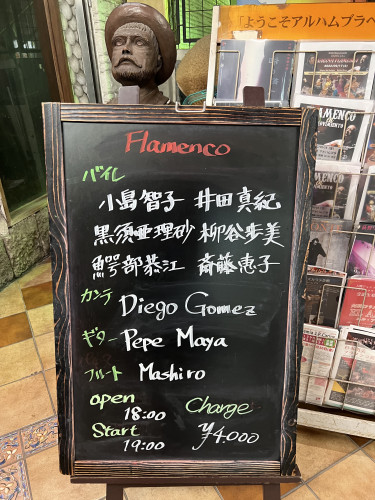 「ようこそアルハムブラへ
Flamenco
バイレ
小島智子 井田真紀
黒須亜理砂 柳谷歩美
鰐部綦江 斎藤恵子
カンテ Diego Gomez
ギター Pepe Maya
フルート Mashiro
open 18:00
Start 19:00
Charge ¥4.000